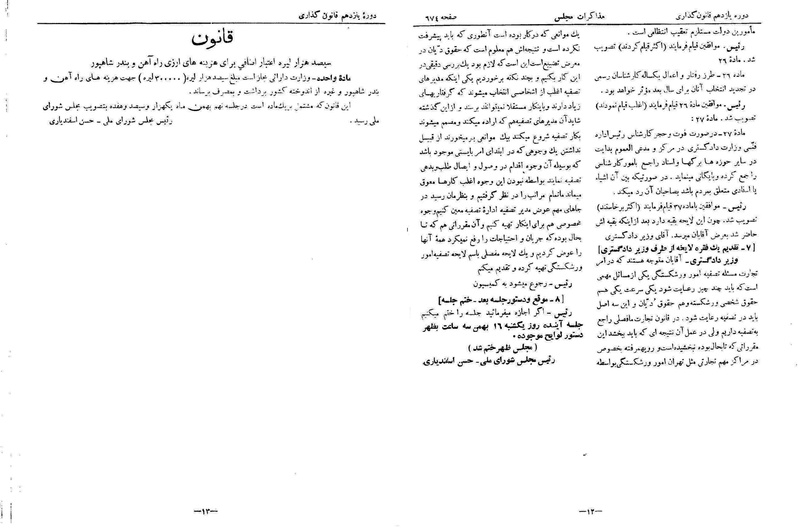 دوره یازدهم قانون‌گذاری
مذاکرات مجلس
صفحه ۶۷٤
مأمورین دولت مستلزم تعقیب انتظامی است.
رئیس ـ موافقین قیام فرمایند (اکثر قیام کردند) تصویب
شد . مادۀ ۲۶
ماده ۲۶ ـ طرز رفتار و اعمال یکساله کارشناسان رسمی
در تجدید انتخاب آنان برای سال بعد مؤثر خواهد بود .
رئیس ـ موافقین مادۀ ۲۶ قیام فرمایند (اغلب قیام نمودند)
تصویب شد . مادۀ ۲۷ :
مادۀ ۲۷ ـ در صورت فوت و حجر کارشناس رئیس اداره
فنی وزارت دادگستری در مرکز و مدعی العموم بدایت
در سایر حوزه ها برگها و اسناد راجع بامور کارشناسی
را جمع کرده و بایگانی مینماید . در صورتیکه بین آن اشیاء
یا اسنادی متعلق بمردم باشد بصاحبان آن رد میکند .
رئیس ـ موافقین با ماده ۲۷ قیام فرمایند (اکثر برخاستند)
تصویب شد. چون این لایحه بقیه دارد بعد از اینکه بقیه اش
حاضر شد بعرض آقایان میرسد. آقای وزیر دادگستری
[۷ ـ تقدیم یك فقره لایحه از طرف وزیر دادگستری]
وزیر دادگستری ـ آقایان متوجه هستند که در امر
تجارت مسئله تصفیه امور ورشکستگی یکی از مسائل مهمی
است که باید چند چیز رعایت شود یکی سرعت یکی هم
حقوق شخصی ورشکسته و هم حقوق دُیّان و این سه اصل
باید در تصفیه رعایت شود . در قانون تجارت ما فصلی راجع
به تصفیه داریم ولی در عمل آن نتیجه ای که باید ببخشد این
مقرراتی که تا بحال بوده نبخشیده است و رویهمرفته بخصوص
در مراکز مهم تجارتی مثل تهران امور ورشکستگی بواسطه
یك موانعی که در کار بوده است آنطوری که باید پیشرفت
نکرده است و نتیجه‌اش هم معلوم است که حقوق دُیّان در
معرض تضییع است این است که لازم بود یك بررسی دقیقی در
این کار بکنیم و بچند نکته برخوردیم یکی اینکه مدیرهای
تصفیه اغلب از اشخاصی انتخاب میشوند که گرفتاریهای
زیاد دارند و باینکار مستقلا نمیتوانند برسند و از این گذشته
شاید آن مدیرهای تصفیه‌هم که اراده میکنند و مصمم میشوند
بکار تصفیه شروع میکنند بیك موانعی برمیخورند از قبیل
نداشتن یك وجوهی که در ابتدای امر بایستی موجود باشد
که بوسیله آن وجوه اقدام در وصول و ایصال طلب بدهی
تصفیه نمایند بواسطه نبودن این وجوه اغلب کارها معوق
میماند ما تمام مراتب را در نظر گرفتیم و بنظرمان رسید در
جاهای مهم عوض مدیر تصفیه ادارۀ تصفیه معین کنیم و وجوه
مخصوصی هم برای اینکار تهیه کنیم و آن مقرراتی هم که تا
بحال بوده که جریان و احتیاجات را رفع نمیکرد همۀ آنها
را عوض کردیم و یك لایحه مفصلی باسم لایحه تصفیه امور
ورشکستگی تهیه کرده و تقدیم میکنم
رئیس ـ رجوع میشود به کمیسیون
[۸ ـ موقع و دستور جلسه بعد ـ ختم جلسه]
رئیس ـ اگر اجازه میفرمائید جلسه را ختم میکنیم
جلسه آینده روز یکشنبه ۱۶ بهمن سه ساعت بظهر
دستور لوایح موجوده .
(مجلس ظهر ختم شد)
رئیس مجلس شورای ملی ـ حسن اسفندیاری
—۱۲—
دورۀ یازدهم قانون گذاری
قانون
سیصد هزار لیره اعتبار اضافی برای هزینه های ارزی راه آهن و بندر شاهپور
مادۀ واحده ـ وزارت دارائی مجاز است مبلغ سیصد هزار لیره (۳۰۰۰۰۰ لیره) جهت هزینه های راه آهن و
بندر شاهپور و غیره از اندوخته کشور برداشت و بمصرف برساند .
این قانون که مشتمل بر یك ماده است در جلسه نهم بهمن ماه یکهزار و سیصد و هفده بتصویب مجلس شورای
ملی رسید .
رئیس مجلس شورای ملی ـ حسن اسفندیاری
—۱۳—